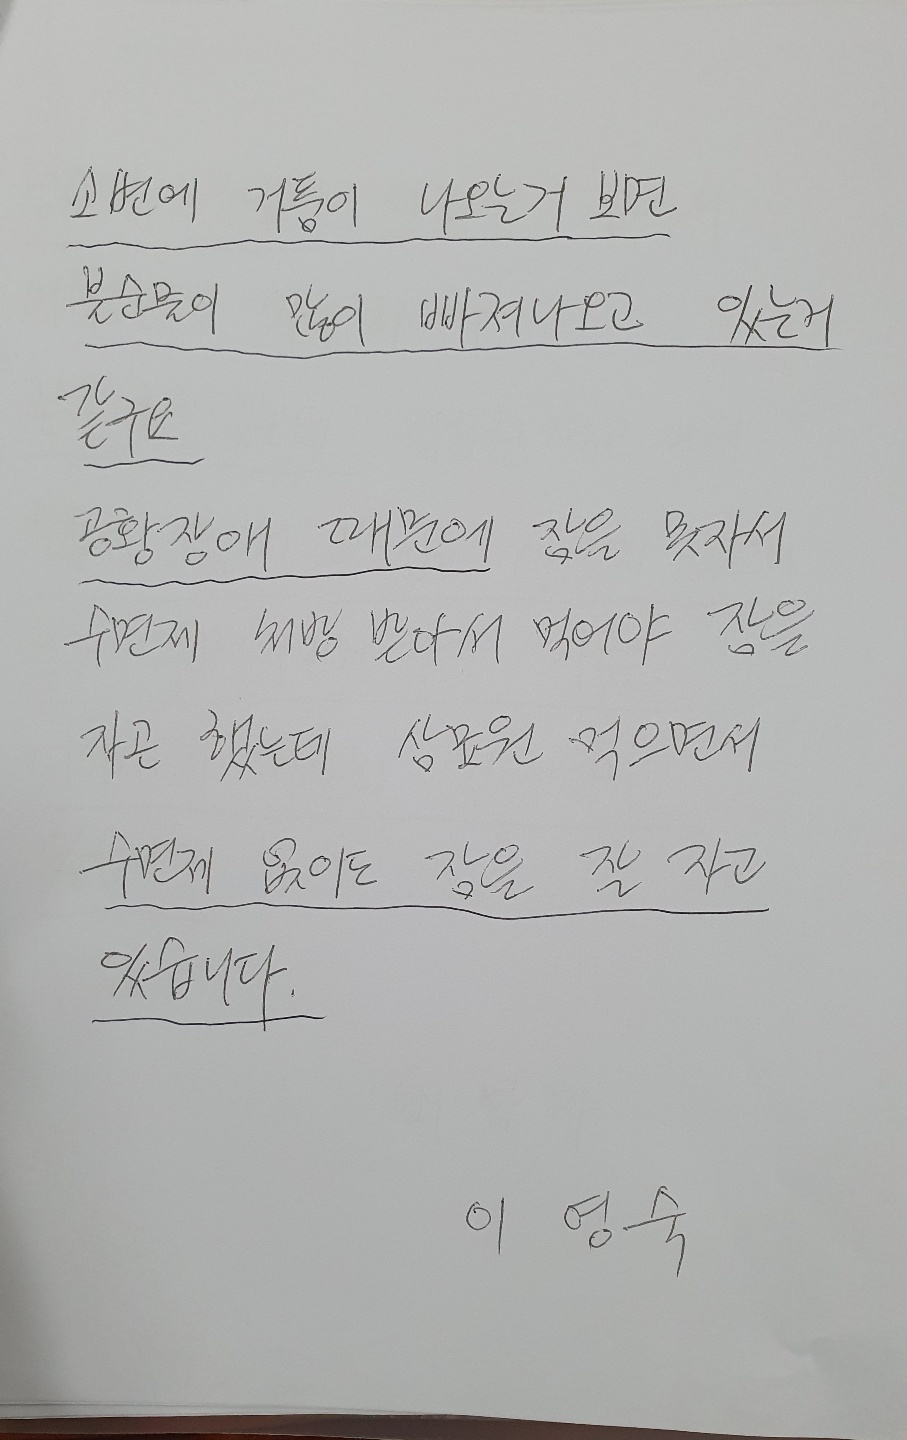 소변에 거품이 나오는거 보면
불순물이 많이 빠져나오고 있는거
같구요
공황장애 때문에 잠을 못자서
수면제 처방 받아서 먹어야 잠을
자곤 했는데 삼표원 먹으면서
수면제 없이도 잠을 잘 자고
있습니다.
이 영숙